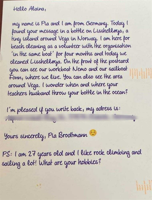 Hello Alaina,
my name is Pia and I am from Germany. Today I
found your message in a bottle on Lisshelløya, a
tiny island around Vega in Norway. I am here for
beach cleaning as a volunteer with the organisation
"in the same boat" for four months and today we
cleaned Lisshelløya. On the front of the postcard
you can see our workboat Nemo and our sailboat
Fonn, where we live. You can also see the area
around Vega. I wonder when and where your
teachers husband threw your bottle in the ocean?
I'm pleased if you write back, my adress is:
Yours sincerely, Pia Brodtmann
PS: I am 27 years old and I like rock climbing and
sailing a lot! What are your hobbies?